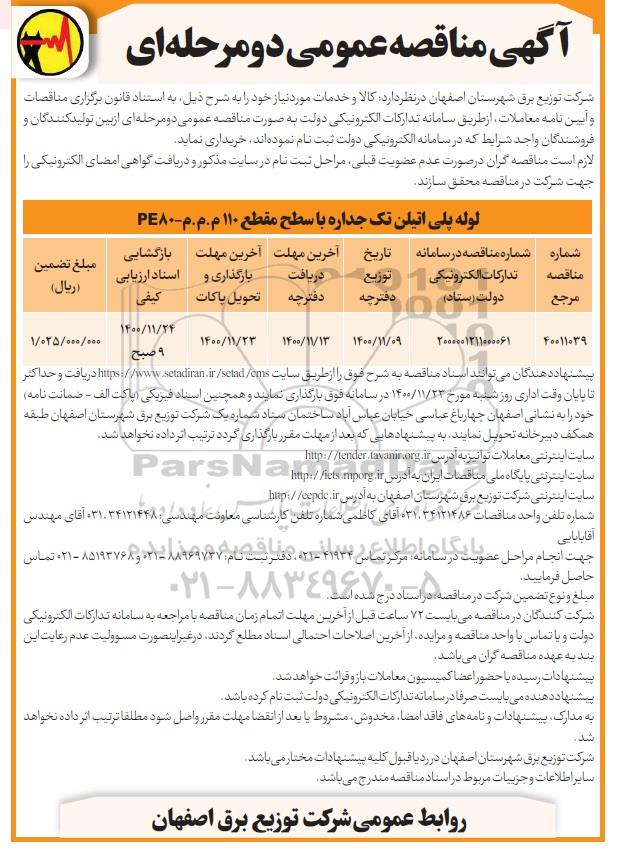 آگهی مناقصه عمومی دو مرحله‌ای
شرکت توزیع برق شهرستان اصفهان درنظر دارد؛ کالا و خدمات مورد نیاز خود را به شرح ذیل، به استناد قانون برگزاری مناقصات
و آیین نامه معاملات ، از طریق سامانه تدارکات الکترونیکی دولت به صورت مناقصه عمومی دو مرحله‌ای از بین تولیدکنندگان و
فروشندگان واجد شرایط که در سامانه الکترونیکی دولت ثبت نام نموده‌اند، خریداری نماید.
لازم است مناقصه گران درصورت عدم عضویت قبلی، مراحل ثبت نام در سایت مذکور و دریافت گواهی امضای الکترونیکی را
جهت شرکت در مناقصه محقق سازند.
لوله پلی اتیلن تک جداره با سطح مقطع ۱۱۰ م.م.م-PE۸۰
شماره مناقصه مرجع
شماره مناقصه در سامانه تدارکات الکترونیکی دولت (ستاد)
تاریخ توزیع دفترچه
آخرین مهلت دریافت دفترچه
آخرین مهلت بارگذاری و تحویل پاکات
بازگشایی اسناد ارزیابی کیفی
مبلغ تضمین (ریال)
۴۰۰۱۱۰۳۹
۲۰۰۰۰۰۱۲۱۱۰۰۰۰۶۱
۱۴۰۰/۱۱/۰۹
۱۴۰۰/۱۱/۱۳
۱۴۰۰/۱۱/۲۳
۱۴۰۰/۱۱/۲۴ ۹ صبح
۱/۰۲۵/۰۰۰/۰۰۰
پیشنهاددهندگان می‌توانند اسناد مناقصه به شرح فوق را از طریق سایت https://www.setadiran.ir/setad/cms دریافت و حداکثر
تا پایان وقت اداری روز شنبه مورخ ۱۴۰۰/۱۱/۲۳ در سامانه فوق بارگذاری نمایند و همچنین اسناد فیزیکی (پاکت الف - ضمانت نامه)
خود را به نشانی اصفهان چهارباغ عباسی خیابان عباس آباد ساختمان ستاد شماره یک شرکت توزیع برق شهرستان اصفهان طبقه
همکف دبیرخانه تحویل نمایند. به پیشنهادهایی که بعد از مهلت مقرر بارگذاری گردد ترتیب اثر داده نخواهد شد.
سایت اینترنتی معاملات توانیر به آدرس http://tender.tavanir.org.ir
سایت اینترنتی پایگاه ملی مناقصات ایران به آدرس http://iets.mporg.ir
سایت اینترنتی شرکت توزیع برق شهرستان اصفهان به آدرس http://eepdc.ir
شماره تلفن واحد مناقصات ۰۳۱.۳۴۱۲۱۴۸۶ آقای کاظمی شماره تلفن کارشناسی معاونت مهندسی: ۰۳۱.۳۴۱۲۱۴۴۸ آقای مهندس
آقابابایی
جهت انجام مراحل عضویت در سامانه: مرکز تماس ۴۱۹۳۴-۰۲۱ ، دفتر ثبت نام: ۸۸۹۶۹۷۳۷-۰۲۱ و ۸۵۱۹۳۷۶۸-۰۲۱ تماس
حاصل فرمایید.
مبلغ و نوع تضمین شرکت در مناقصه: در اسناد درج شده است.
شرکت کنندگان در مناقصه می‌بایست ۷۲ ساعت قبل از آخرین مهلت اتمام زمان مناقصه با مراجعه به سامانه تدارکات الکترونیکی
دولت و یا تماس با واحد مناقصه و مزایده، از آخرین اصلاحات احتمالی اسناد مطلع گردند، درغیراینصورت مسوولیت عدم رعایت این
بند به عهده مناقصه گران می‌باشد.
پیشنهادات رسیده با حضور اعضا کمیسیون معاملات باز و قرائت خواهد شد.
پیشنهاددهنده می‌بایست صرفا در سامانه تدارکات الکترونیکی دولت ثبت نام کرده باشد.
به مدارک، پیشنهادات و نامه‌های فاقد امضا، مخدوش، مشروط یا بعد از انقضا مهلت مقرر واصل شود مطلقا ترتیب اثر داده نخواهد
شد.
شرکت توزیع برق شهرستان اصفهان در رد یا قبول کلیه پیشنهادات مختار می‌باشد.
سایر اطلاعات و جزییات مربوط در اسناد مناقصه مندرج می‌باشد.
روابط عمومی شرکت توزیع برق اصفهان
ParsNamadData
پایگاه اطلاع رسانی مناقصه و مزایده
۰۲۱-۸۸۳۴۹۶۷۰-۵